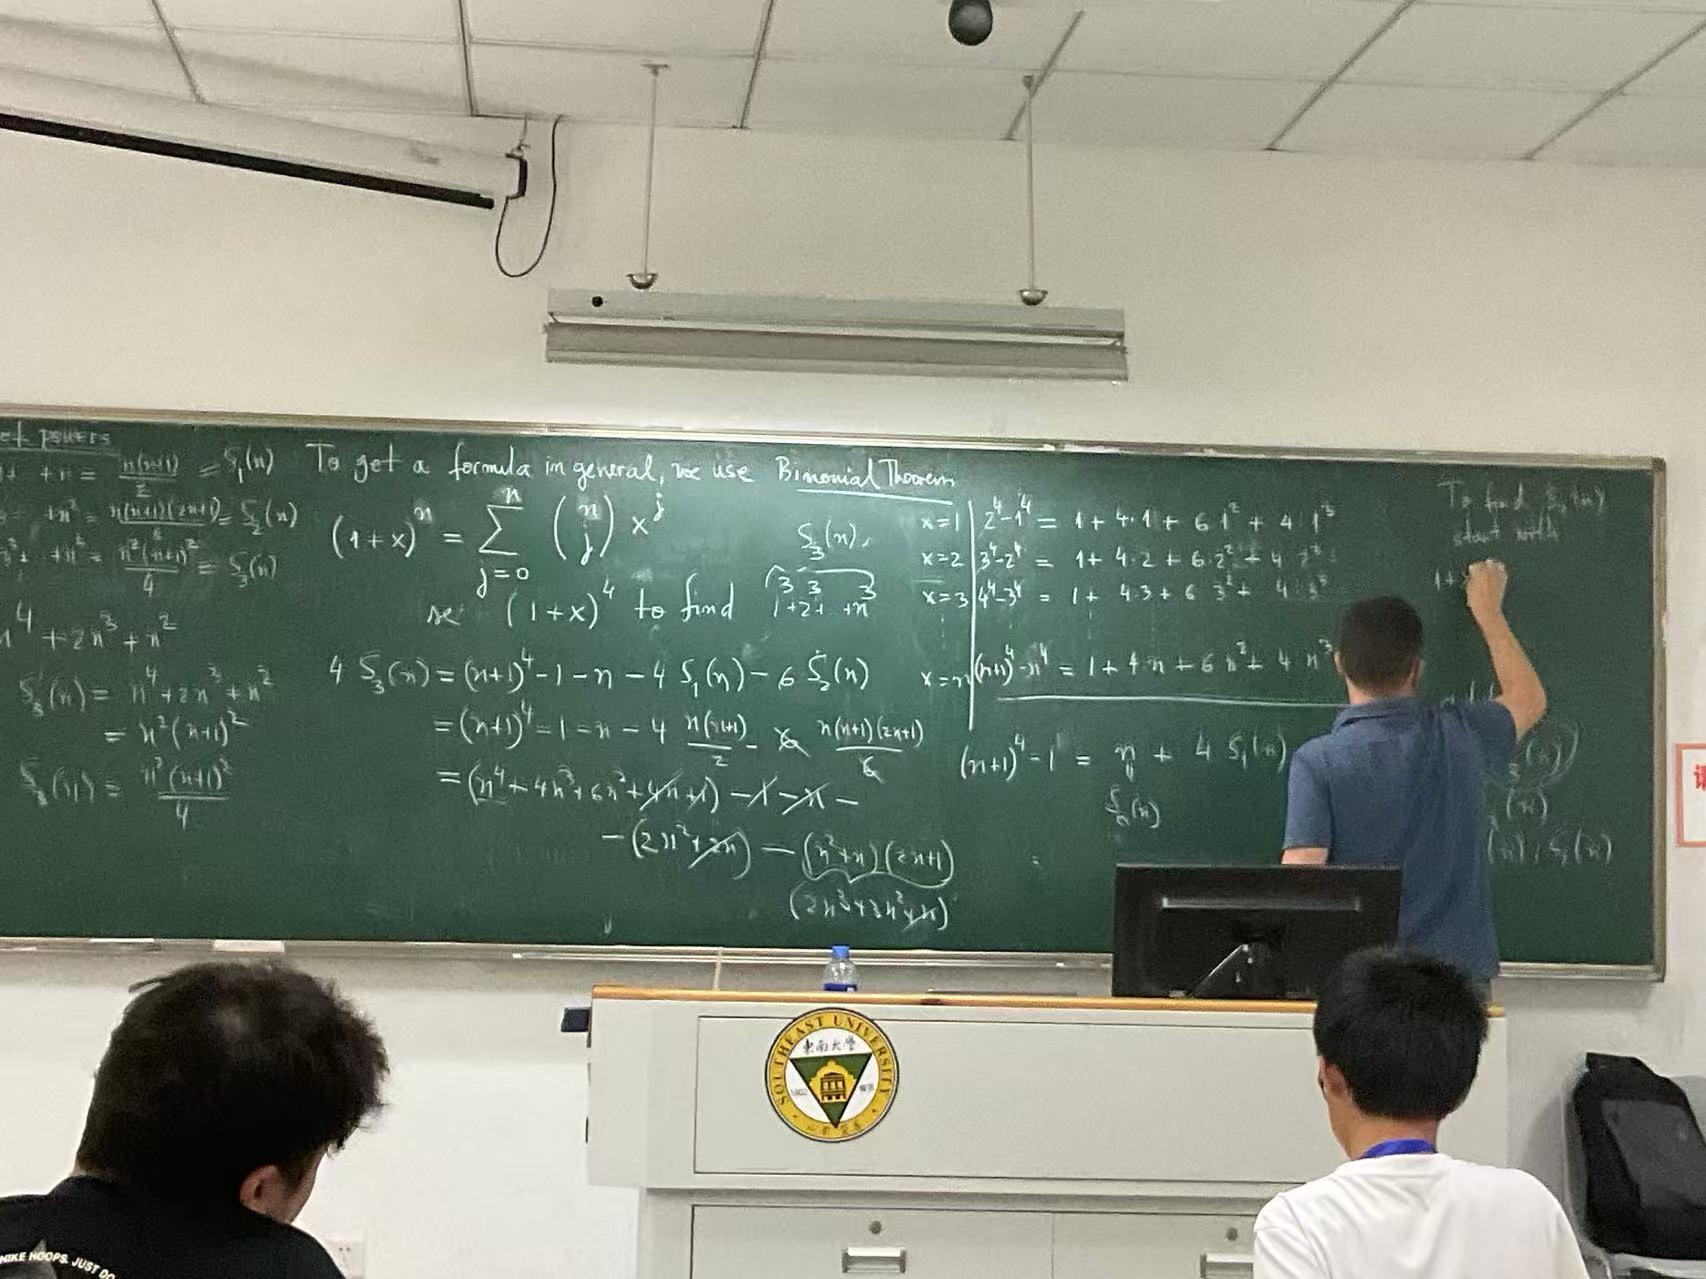 of powers
+ n = n(n+1)/2 = S₁(n)
+n² = n(n+1)(2n+1)/6 = S₂(n)
n²(n+1)²/4 = S₃(n)
n⁴ + 2n³ + n²
S₃(n) = n⁴ + 2n³ + n²
= n²(n+1)²
n²(n+1)²/4
To get a formula in general, we use Binomial Theorem
(1+x)ⁿ = ∑ⁿ_{j=0} (n j) xʲ
S₃(n).
(1+x)⁴ to find 1³+2³+..+n³
4 S₃(n) = (n+1)⁴ - 1 - n - 4 S₁(n) - 6 S₂(n)
= (n+1)⁴ - 1 - n - 4 n(n+1)/2 - 6 n(n+1)(2n+1)/6
= (n⁴ + 4n³ + 6n² + 4n + 1) - 1 - n -
- (2n² + 2n) - (n²+n)(2n+1)
(2n³+3n²+n)
x=1 2⁴-1⁴ = 1 + 4·1 + 6 1² + 4 1³
x=2 3⁴-2⁴ = 1 + 4·2 + 6·2² + 4 2³
x=3 4⁴-3⁴ = 1 + 4·3 + 6 3² + 4·3³
x=n (n+1)⁴-n⁴ = 1 + 4·n + 6 n² + 4 n³
(n+1)⁴ - 1 = n + 4 S₁(n)
S₀(n)
To find S₄(n)
start with
1+
(n)
(n), S₂(n)
SOUTHEAST UNIVERSITY
東南大學
1902
南京
NIKE HOOPS. JUST DO